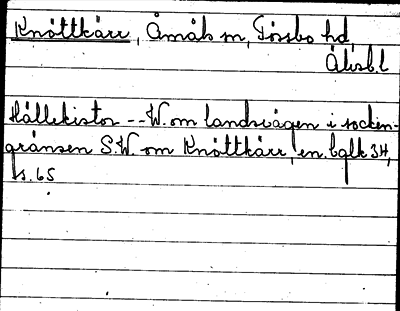 Knöttkärr, Åmåls sn, Tössbo hd,
Älvsb. l
Hällekistor -- W. om landsvägen i socken-
gränsen S.W. om Knöttkärr, en. bglk 34,
s. 65